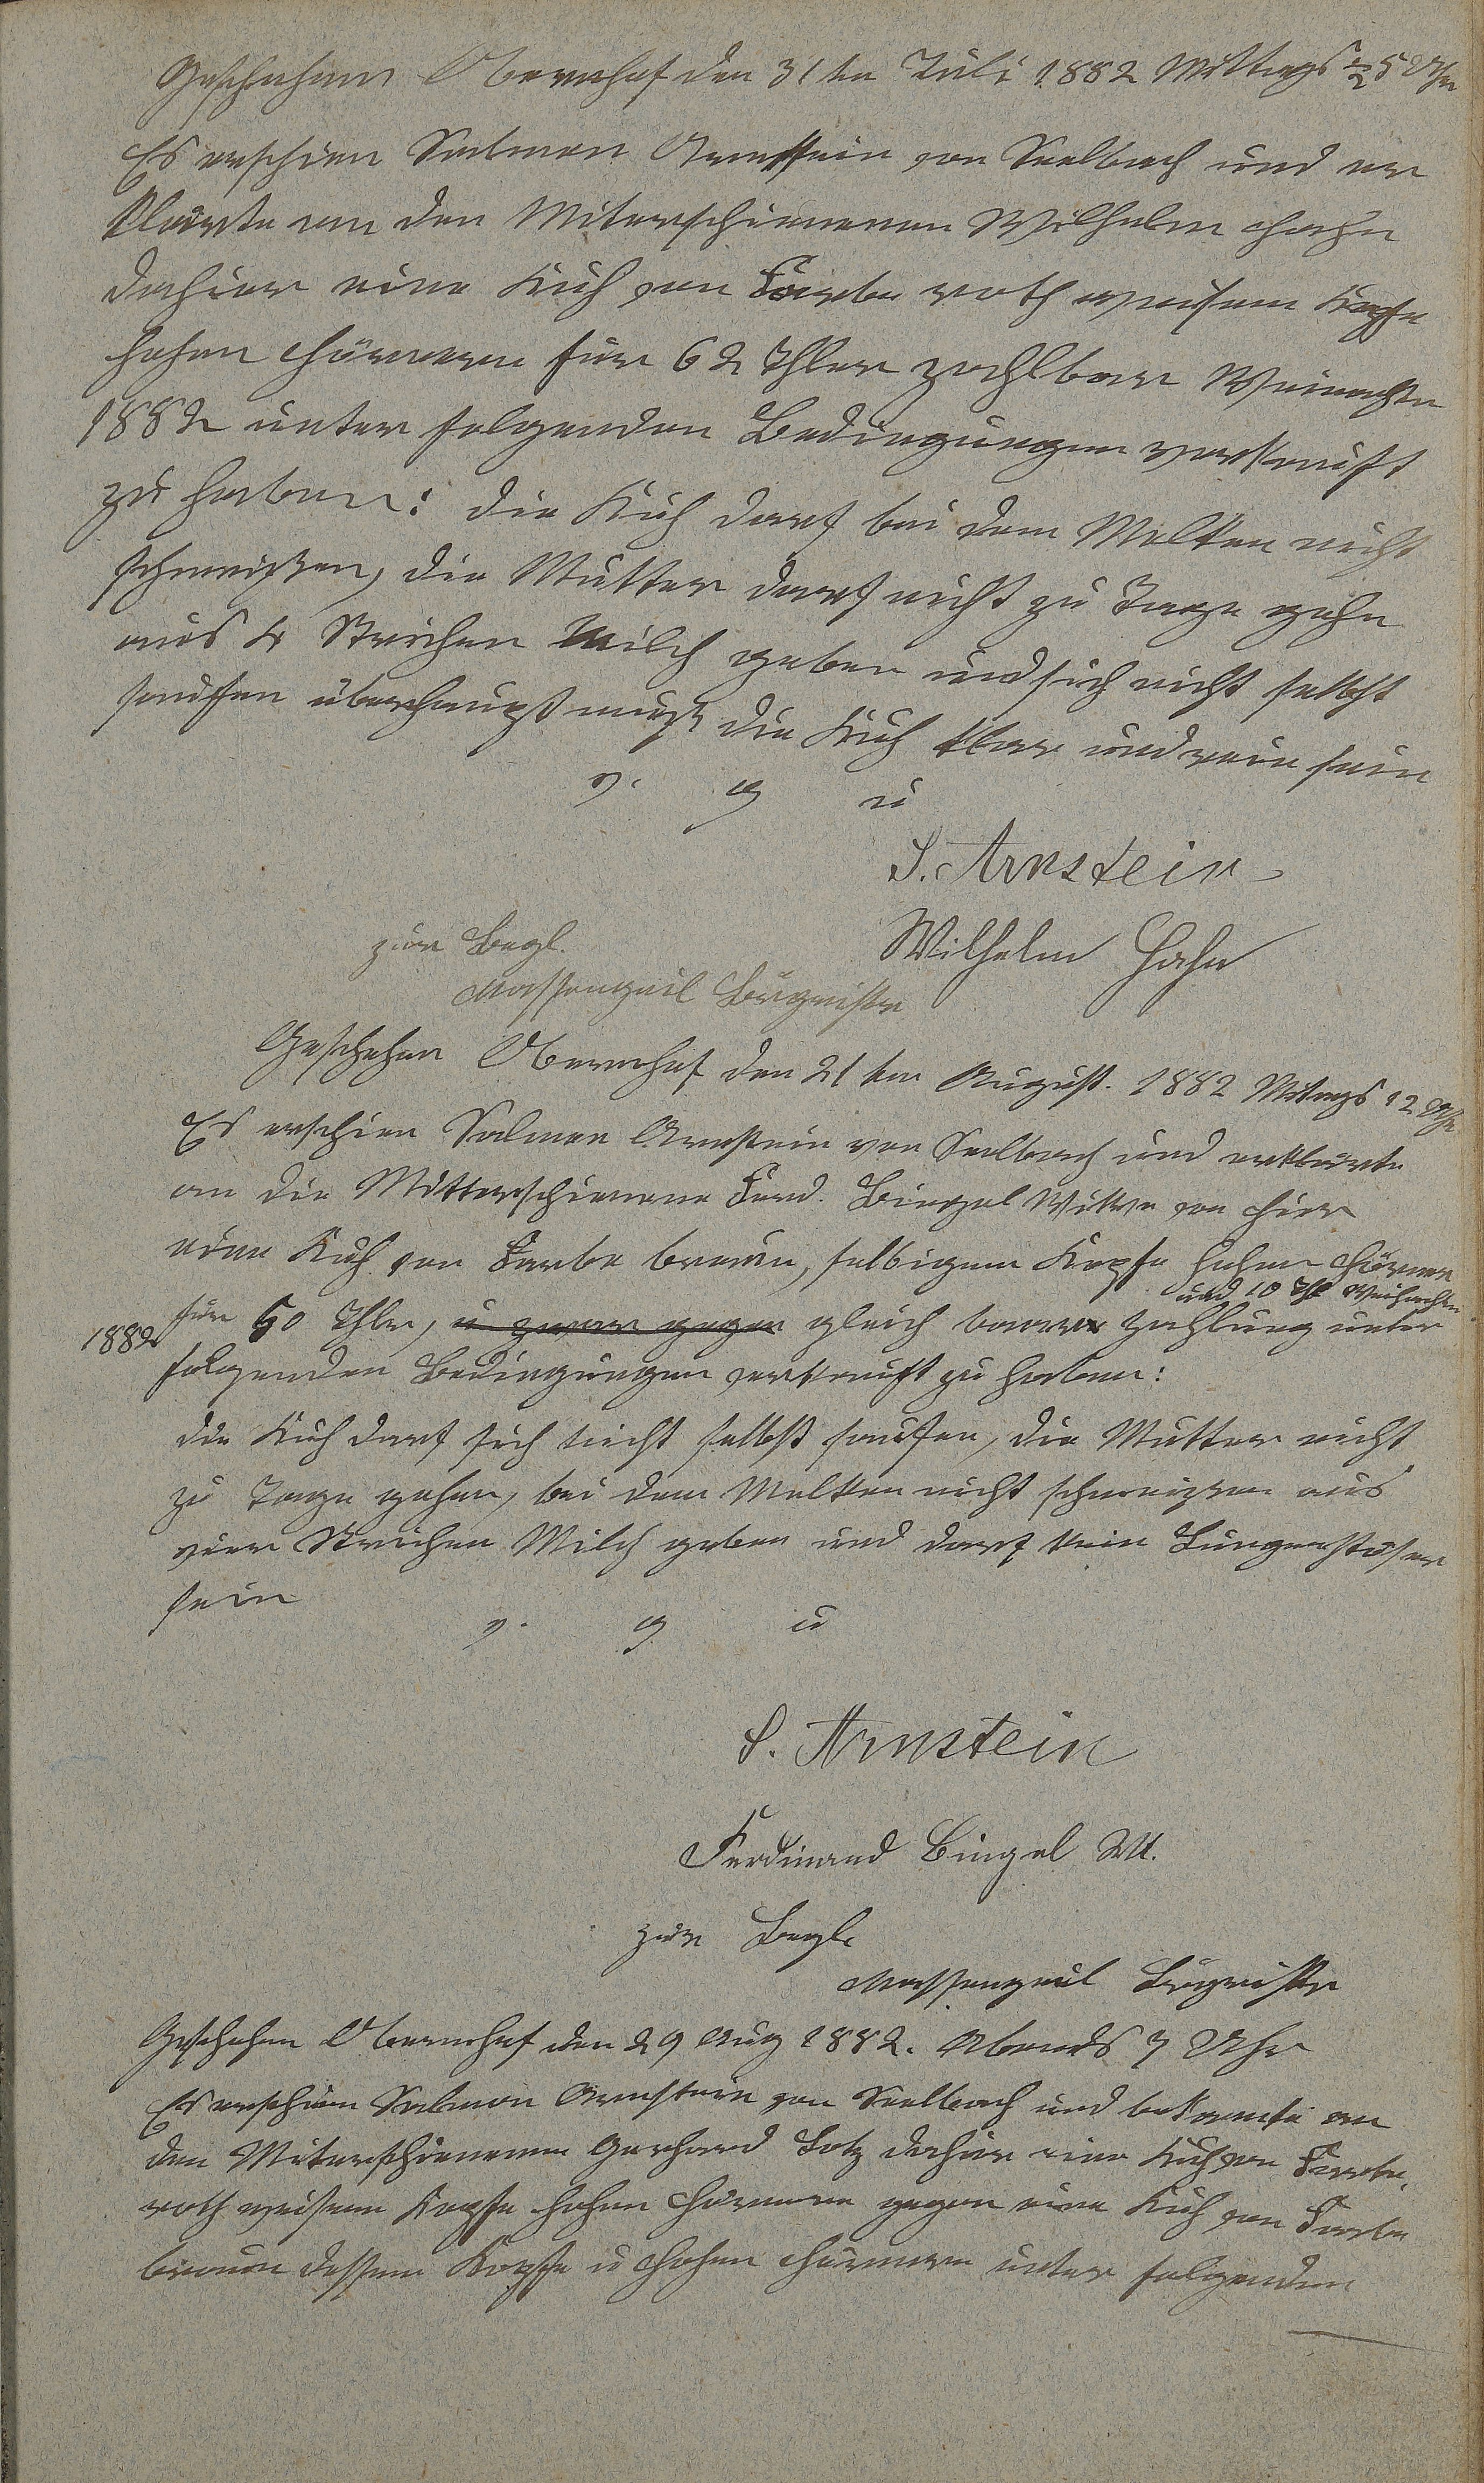 Geschehen Obernhof den 31ten Juli 1882 Mittags ½ 5 Uhr
Es erschien Salmon Arnstein von Seelbach und er
klärte an den Miterschienenen Wilhelm Hahn
dahier eine Kuh von Farbe roth weisem Kopfe
hohen Hörnern für 62 Thler zahlbar Weinachten
1882 unter folgenden Bedingungen verkauft
zu haben: die Kuh darf bei dem Melken nicht
schmeißen, die Mutter darf nicht zu Tage gehn
aus 4 Strichen Milch geben und sich nicht selbst
saufen überhaupt muß die Kuh klar und rein sein
v. g u
S. Arnstein
Wilhelm Hahn
zur Begl.
Massengeil Bürgmstr
Geschehen Obernhof den 21ten August. 1882 Mitags 12 Uhr
Es erschien Salmon Arnstein von Seelbach und erklärte
an die Mitterschienene Ferd. Bingel Witwe von hier
eine Kuh von Farbe braun, selbigem Kopfe hohen Hörnern
und 10 Thl Weihnachten
1882 für 50 Thlr, u zwar gegen gleich baare Zahlung unter
folgenden Bedingungen verkauft zu haben:
die Kuh darf sich nicht selbst saufen, die Mutter nicht
zu Tage gehen, bei dem Melken nicht schmeißen aus
vier Strichen Milch geben und darf kein Lungenstöser
sein
v. g u
S. Arnstein
Ferdinand Bingel Wt.
zur Begl.
Massengeil Bürgmstr
Geschehen Obernhof den 29 Aug 1882. Abends 7 Uhr
Es erschien Salmon Arnstein von Seelbach und bekannte an
den Miterschienenen Gerhard Lotz dahier eine Kuh von Farbe
roth weisem Kopfe hohen Hörnern gegen eine Kuh von Farbe
braun dessem Kopfe u hohen Hörnern unter folgenden